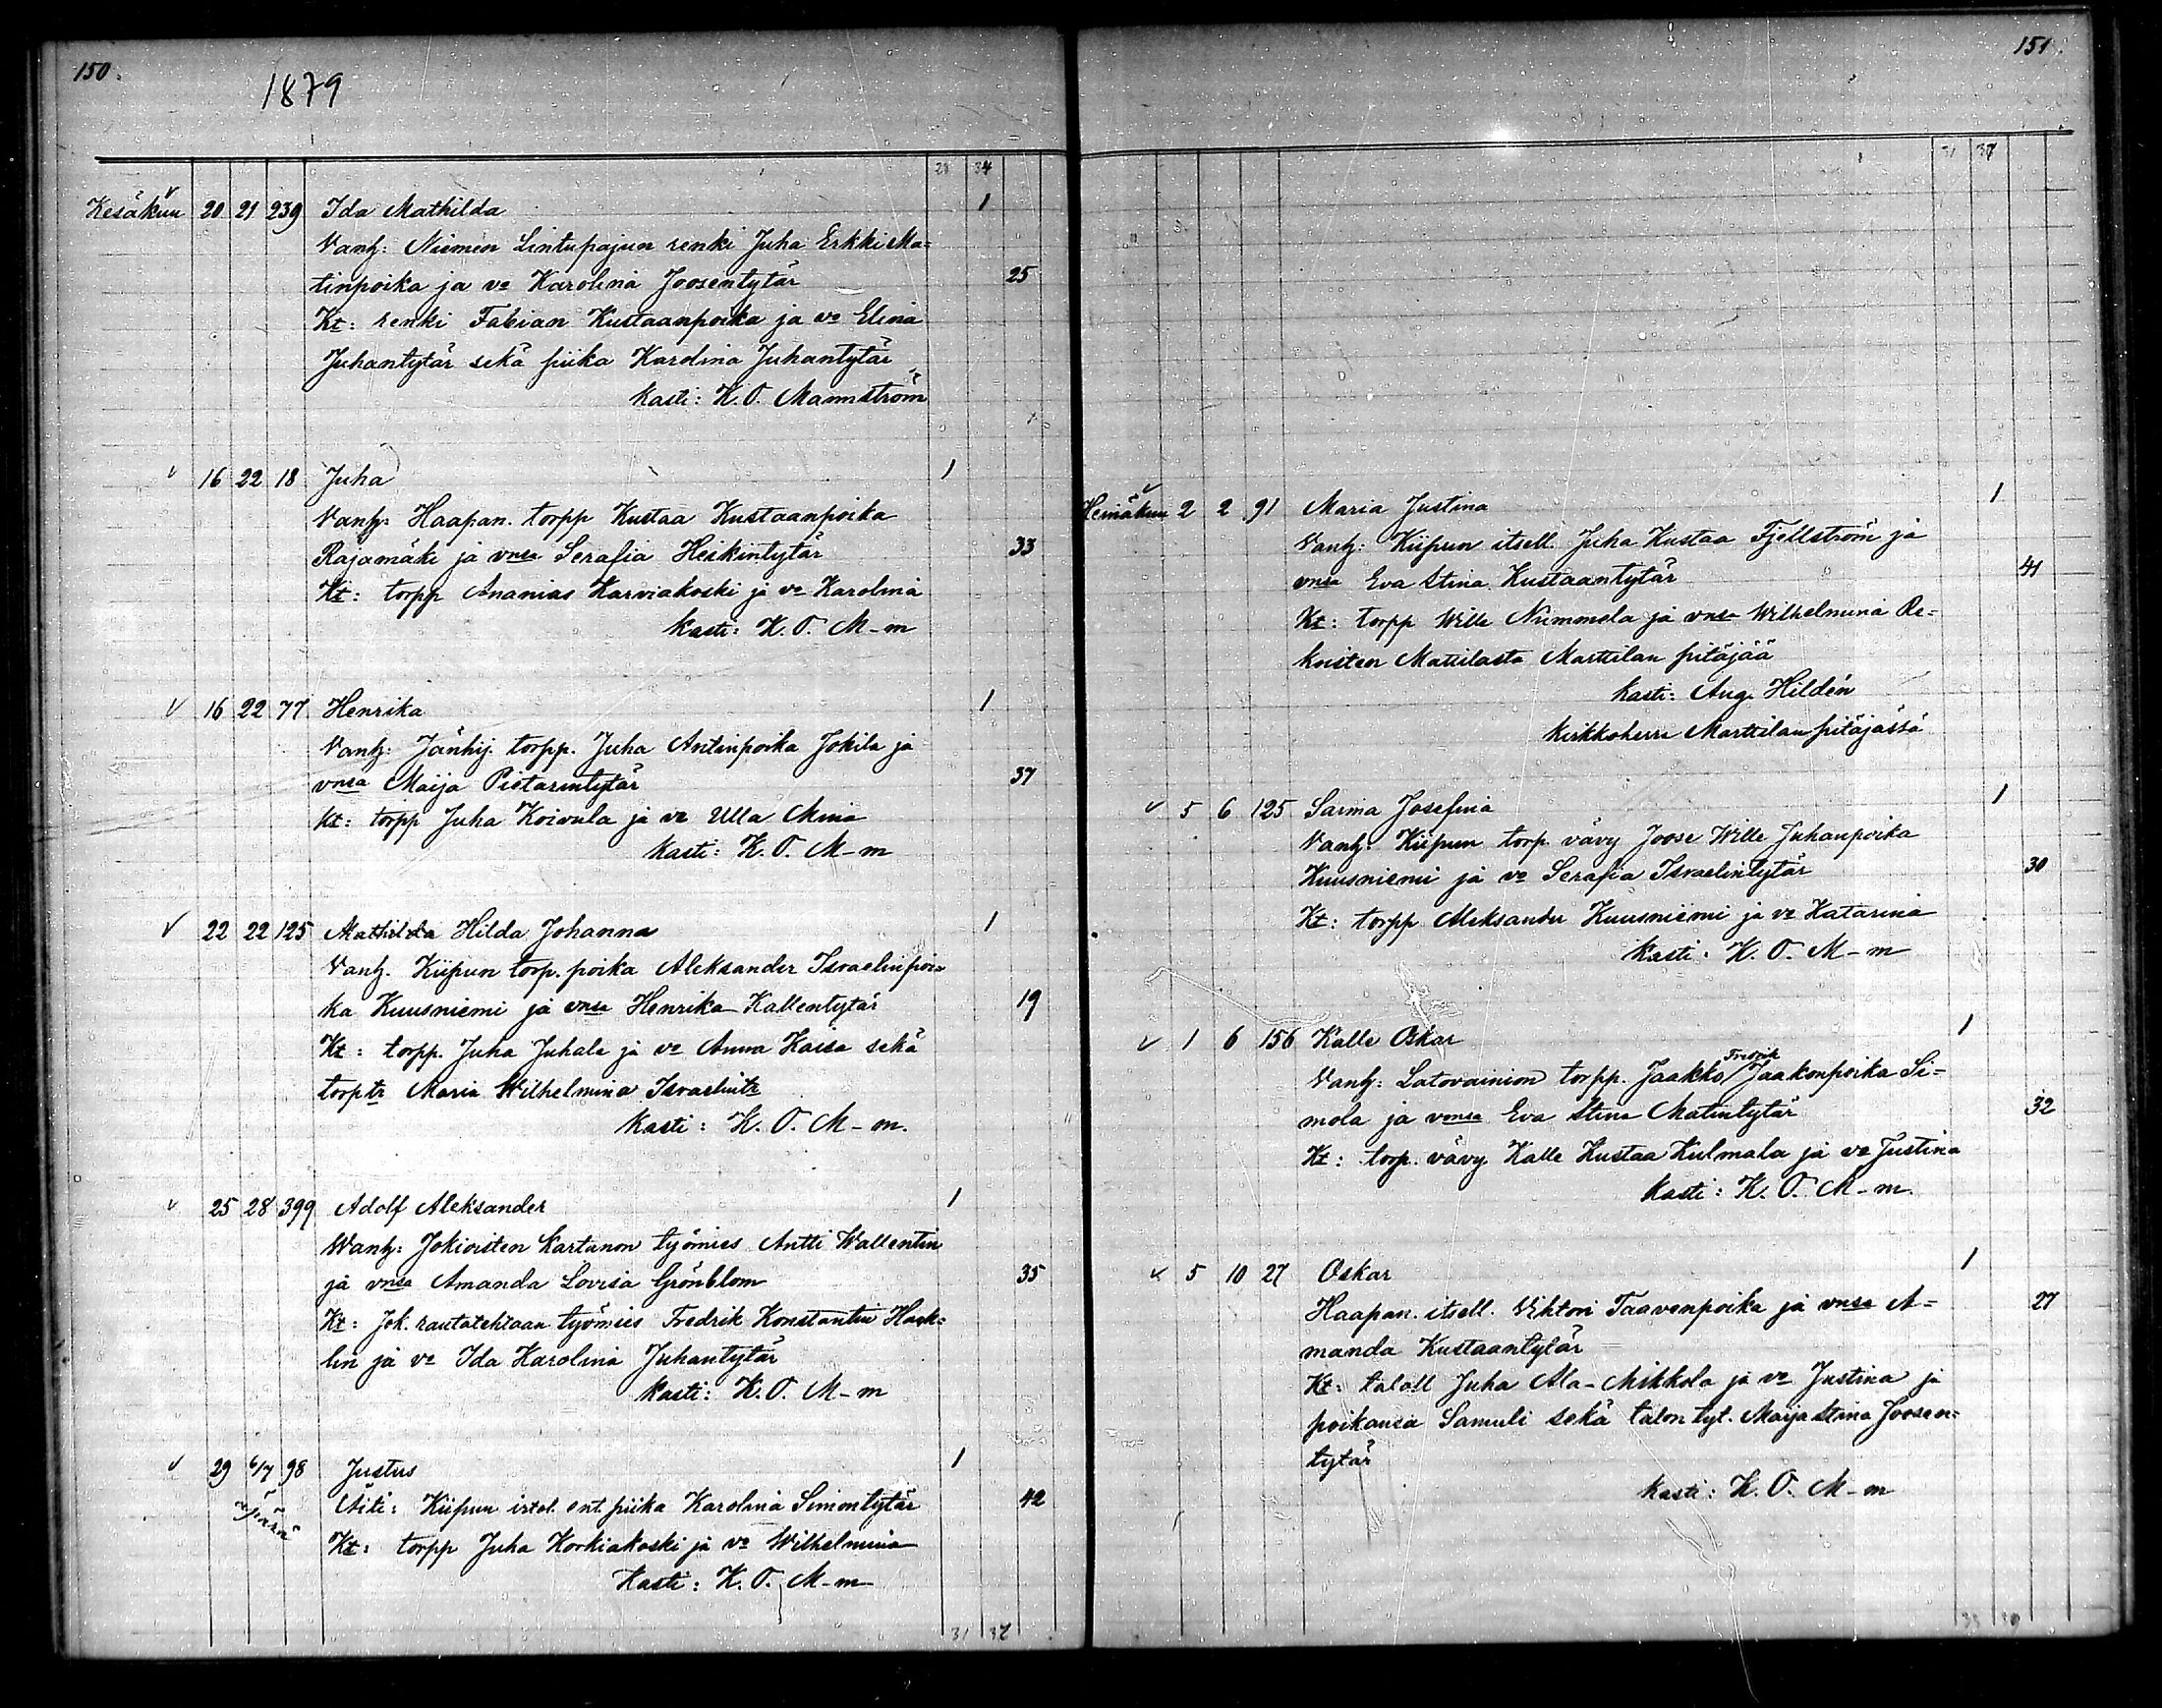 150.
1879
28 34
Kesäkuu 20 21 239 Ida Mathilda 1
Vanh: Niemen Lintupajun renki Juha Erkki Ma=
tinpoika ja vo Karolina Joosentytär 25
Kt: renki Fabian Kustaanpoika ja vo Elina
Juhantytär sekä piika Karolina Juhantytär
Kasti: K. O. Mannström
16 22 18 Juha 1
Vanh: Haapan. torpp Kustaa Kustaanpoika
Rajamäki ja vnsa Serafia Heikintytär 33
Kt: torpp Ananias Karviakoski ja vo Karolina
Kasti: K. O. M-m
16 22 77 Henrika 1
Vanh: Jänhij. torpp. Juha Antinpoika Jokila ja
vnsa Maija Pietarintytär 37
Kt: torpp Juha Koivula ja vo Ulla Mina
Kasti: K. O. M-m
22 22 125 Mathilda Hilda Johanna 1
Vanh. Kiipun torp. poika Aleksander Israelinpoi=
ka Kuusniemi ja vnsa Henrika Kallentytär 19
Kt: torpp. Juha Juhala ja vo Anna Kaisa sekä
torp tr Maria Wilhelmina Israelintr
Kasti: K. O. M-m.
25 28 399 Adolf Aleksander 1
Wanh: Jokioisten Kartanon työmies Antti Wallentin
ja vnsa Amanda Lovisa Grönblom 35
Kt: Jok. rautatehtaan työmies Fredrik Konstantin Hack=
lin ja vo Ida Karolina Juhantytär
Kasti: K. O. M-m
29 6/7 98 Justus 1
Äiti: Kiipun istel. ent. piika Karolina Simontytär 42
Kt: torpp Juha Korkiakoski ja vo Wilhelmina
Kasti: K. O. M-m
31 37
151.
31 37
Heinäkuu 2 2 91 Maria Justina 1
Vanh: Kiipun itsell. Juha Kustaa Fjellström ja
vnsa Eva Stina Kustaantytär 41
Kt: torpp Wille Nummela ja vnsa Wilhelmina Re=
koisten Mattilasta Marttilan pitäjää
Kasti: Aug. Hildén
Kirkkoherra Marttilan pitäjässä
5 6 125 Saima Josefina 1
Vanh. Kiipun torp. vävy Joose Wille Juhanpoika
Kuusniemi ja vo Serafia Israelintytär 30
Kt: torpp Aleksander Kuusniemi ja vo Katarina
Kasti: K. O. M-m
1 6 156 Kalle Oskar 1
Fredrik
Vanh: Latovainion torpp. Jaakko Jaakonpoika Si=
mola ja vnsa Eva Stina Matintytär 32
Kt: torp. vävy Kalle Kustaa Kulmala ja vo Justina
Kasti: K. O. M-m.
5 10 27 Oskar 1
Haapan. itsell. Vihtori Taavenpoika ja vnsa A= 27
manda Kustaantytär
Kt: taloll Juha Ala-Mikkola ja vo Justina ja
poikansa Samuli sekä talon tyt. Maija Stina Joosen=
tytär
Kasti: K. O. M-m
33 39